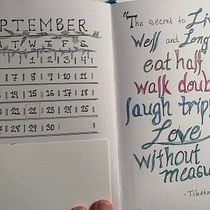 PTEMBER
T W T F S
1 2 3 4
7 8 9 10 11
14 15 16 17 18
21 22 23 24 25
28 29 30
"The secret to Liv
Well and Long
eat half
walk doub
laugh trip
Love
without
measu
-Tibeta